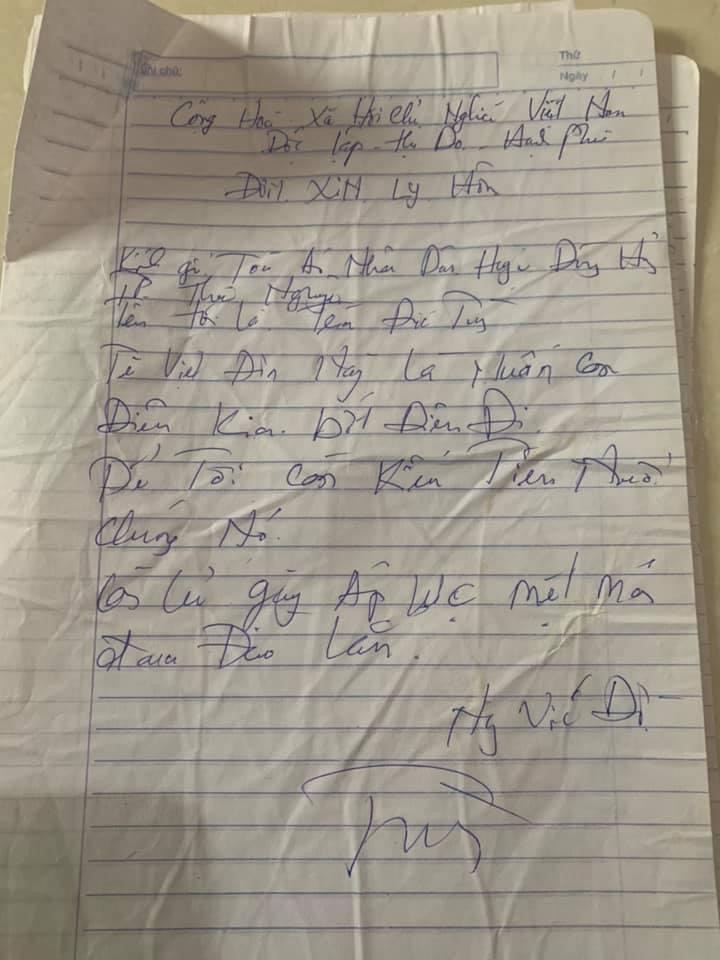 Ghi chú:
Thứ
Ngày / /
Cộng Hoà Xã Hội Chủ Nghĩa Việt Nam
Độc lập - Tự Do - Hạnh Phúc
Đơn Xin Ly Hôn
Kính gửi Toà Án Nhân Dân Huyện Đồng Hỷ
TP Thái Nguyên
Tên tôi là
Tôi Viết Đơn Này Là Muốn Con
Điên Kia bớt Điên Đi
Để Tôi Còn Kiếm Tiền Nuôi
Chúng Nó.
Cứ gây Áp Lực Mệt Mỏi
Đéo
Ng Viết